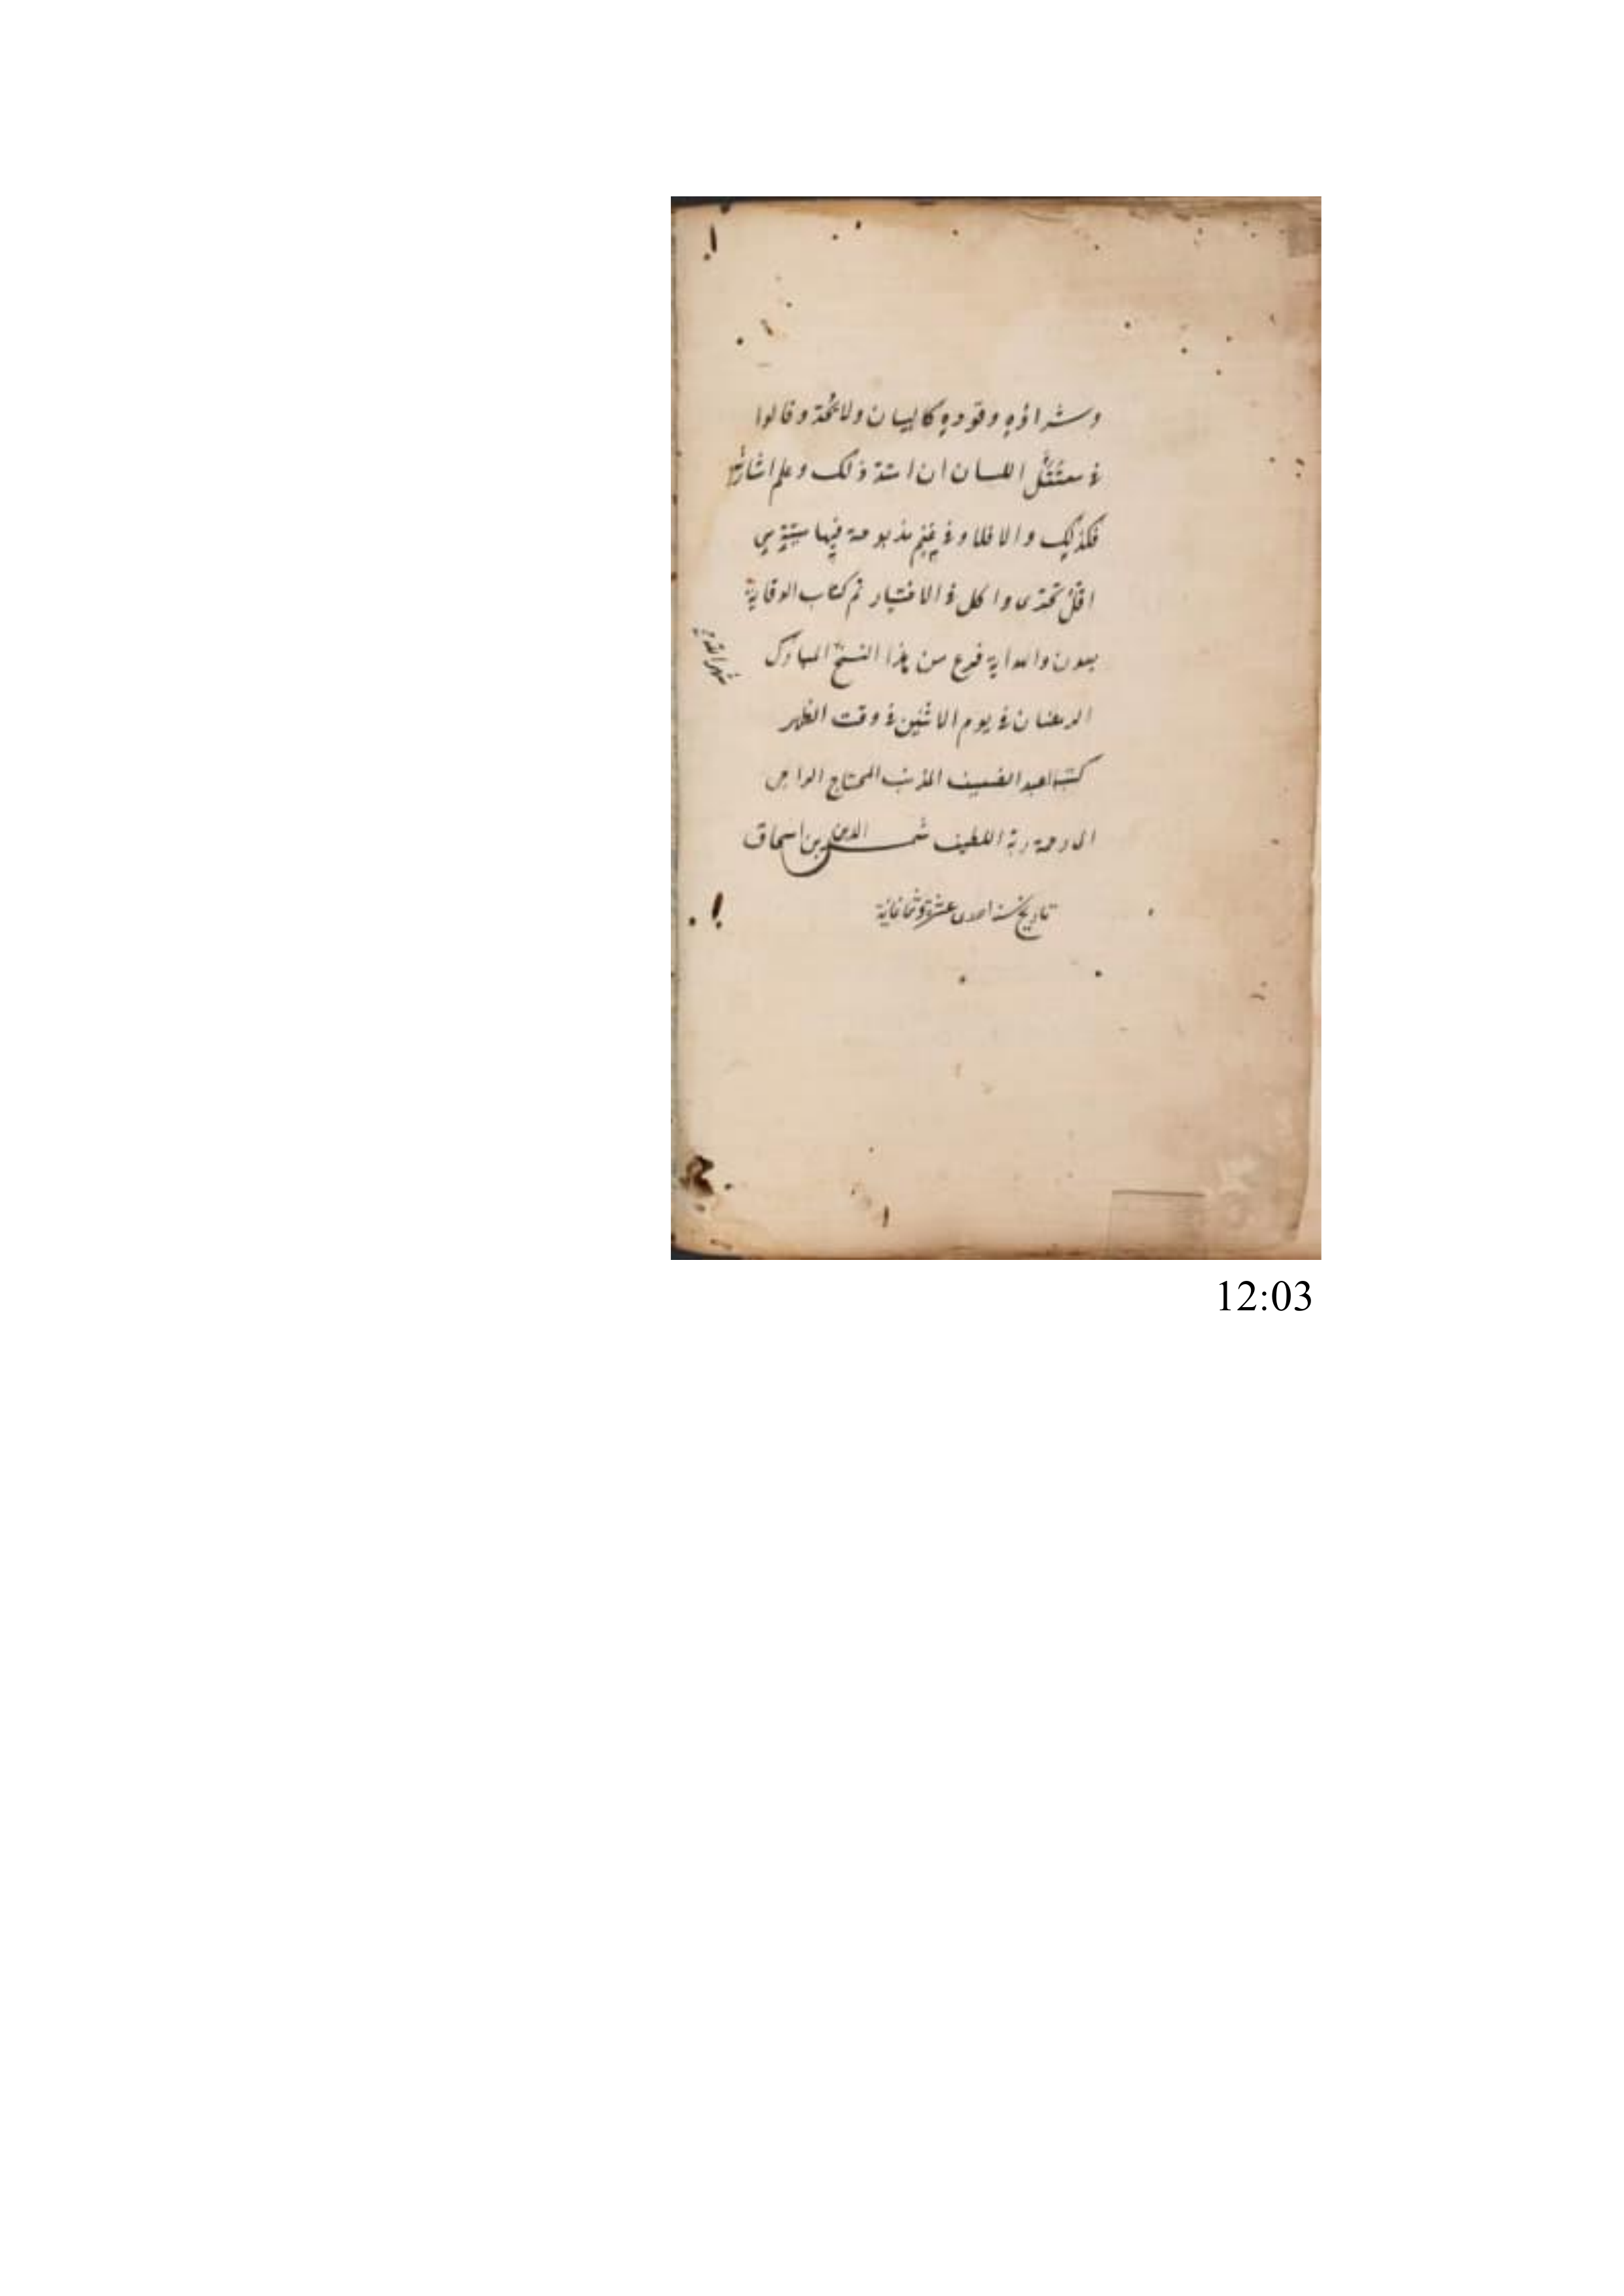 وشراؤه وقوده كالبيان ولا يحد وقالوا
في معتقل اللسان ان امتد ذلك وعلم اشارته
فكذلك والا فلا وفي غنم مذبوحة فيها ميتة هي
اقل تحرى واكل في الاختيار تم كتاب الوقاية
بعون والهداية فرغ من هذا النسخ المبارك
شهر الله
الرمضان في يوم الاثنين في وقت الظهر
كتبه العبد الضعيف المذنب المحتاج الراجى
الى رحمة ربه اللطيف شمس الدين بن اسحاق
تاريخ سنه احدى عشرة وثمانمائة
12:03